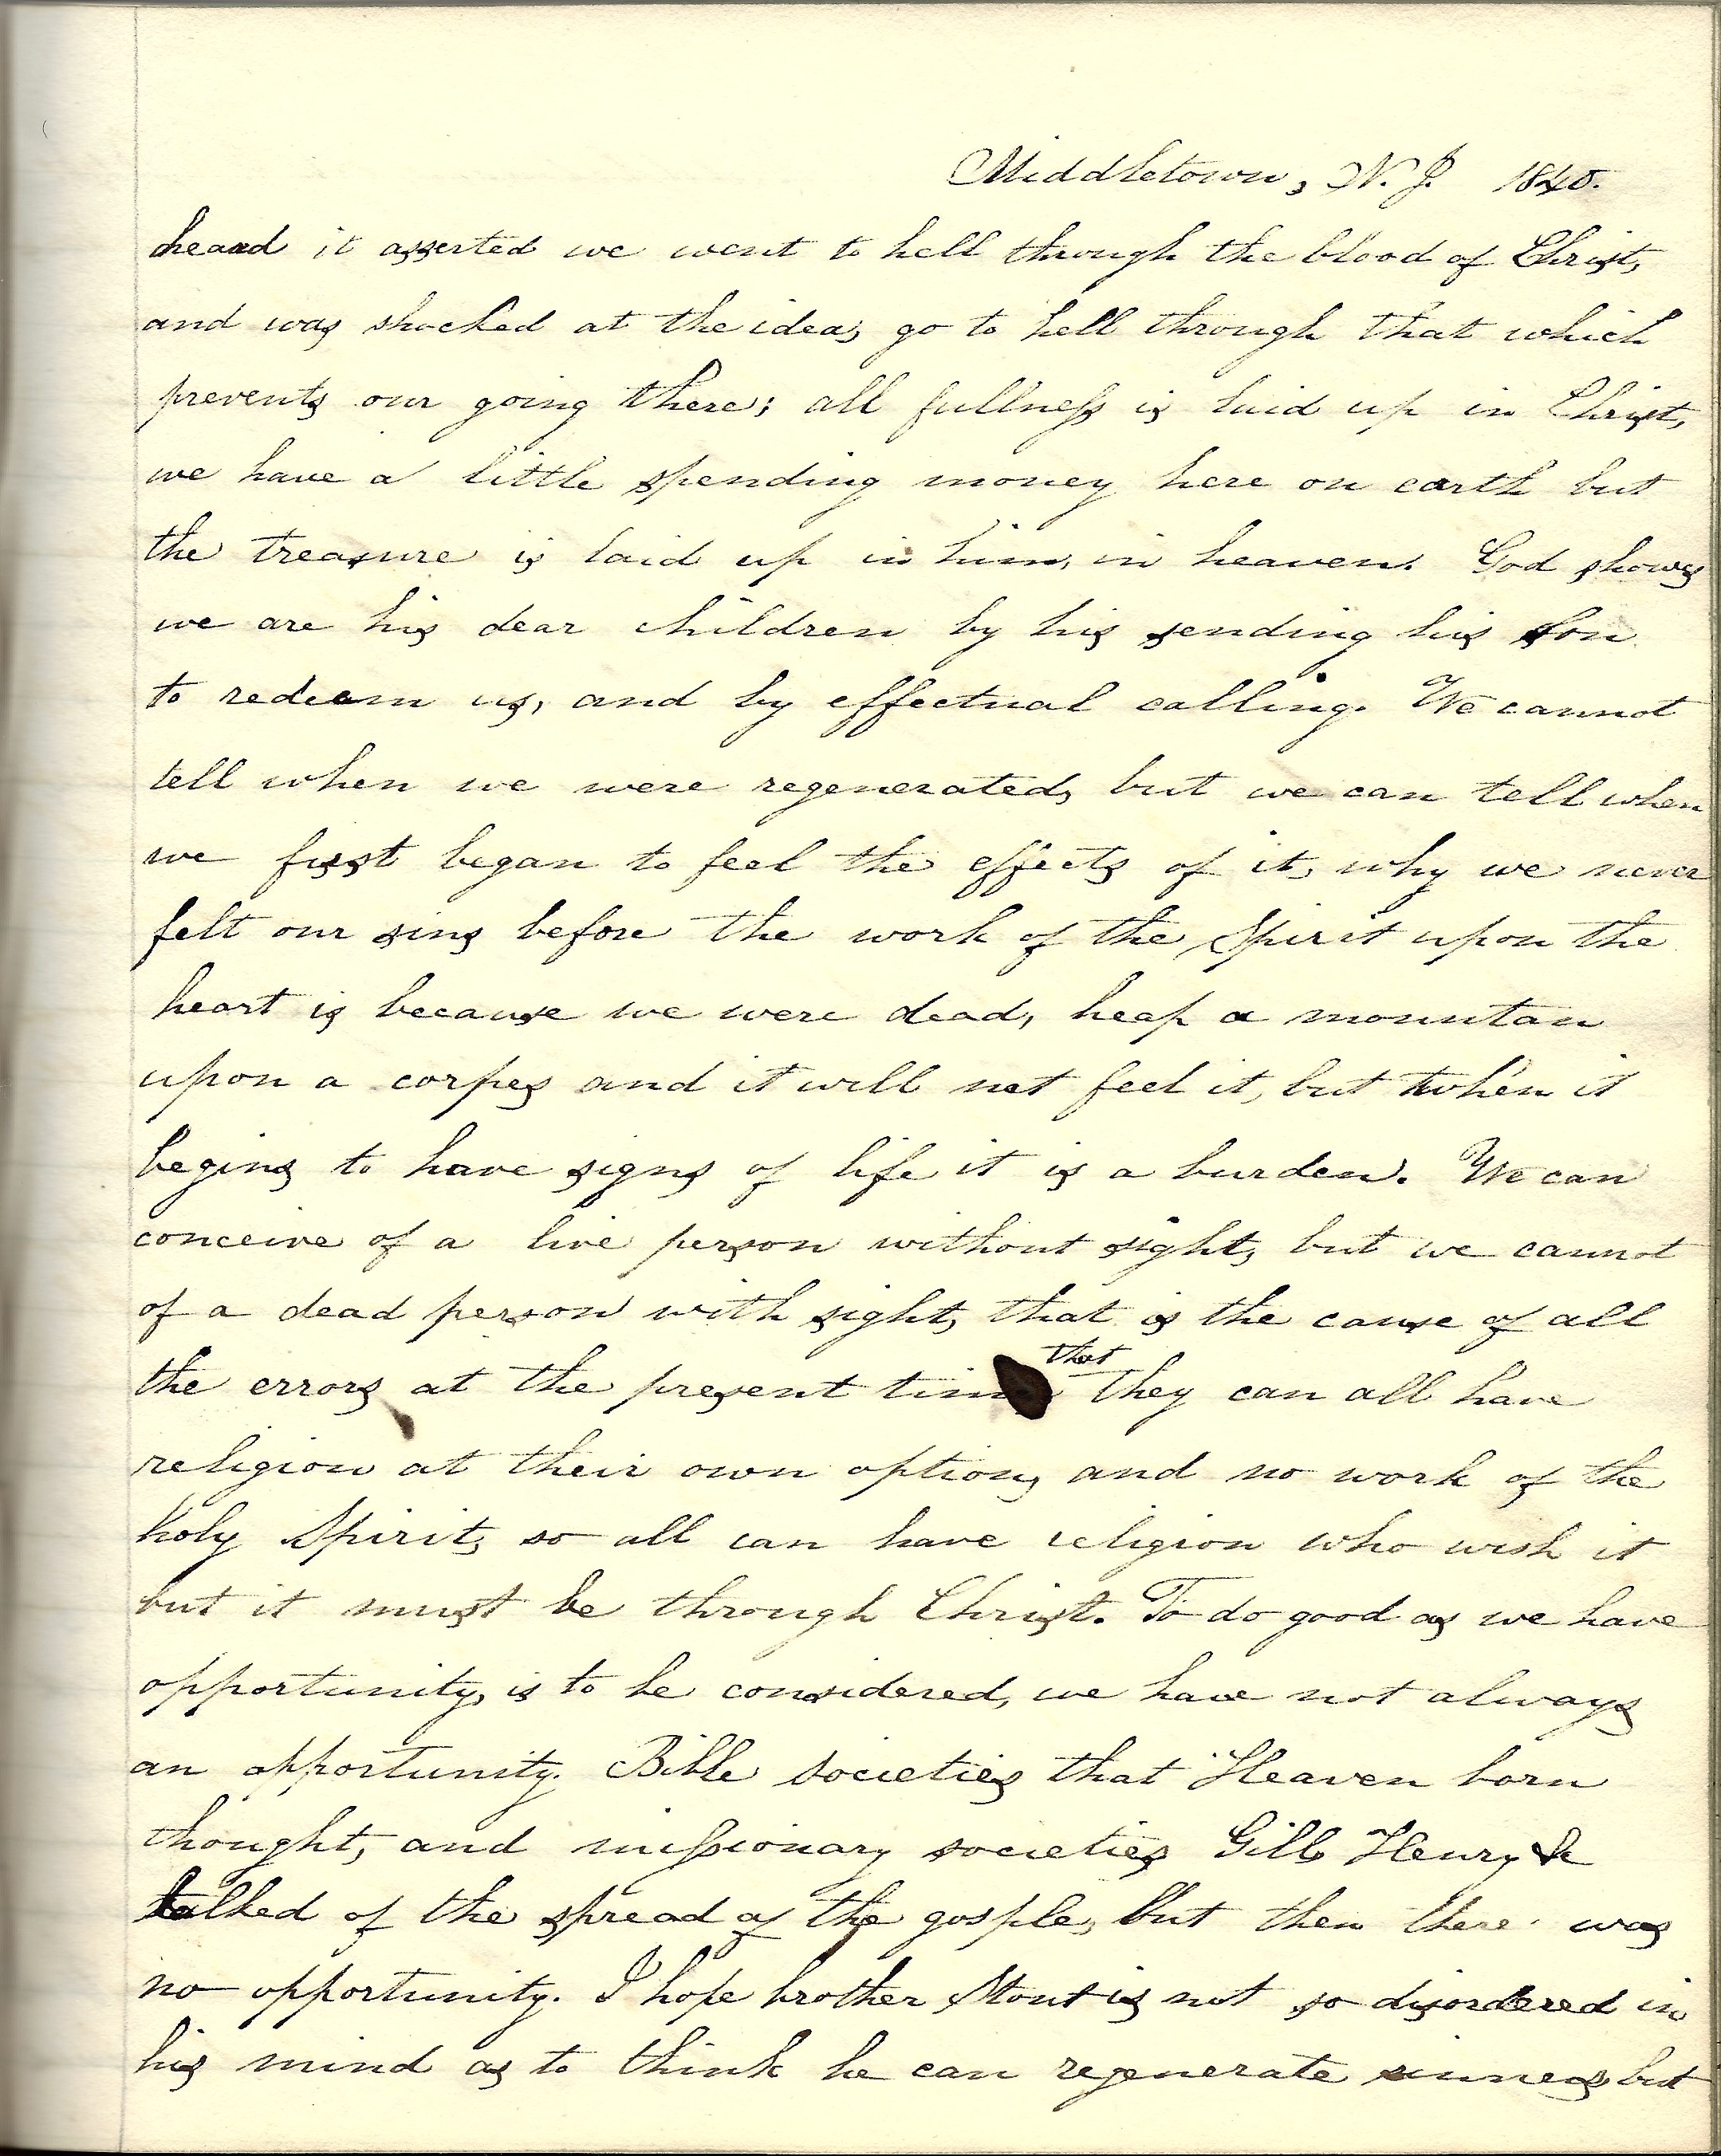 Middletown, N. J. 1840.
heard it asserted we went to hell through the blood of Christ,
and was shocked at the idea, go to hell through that which
prevents our going there; all fullness is laid up in Christ,
we have a little spending money here on earth but
the treasure is laid up in him, in heaven. God shows
we are his dear children by his sending his son
to redeem us, and by effectual calling. We cannot
tell when we were regenerated, but we can tell when
we first began to feel the effects of it, why we never
felt our sins before the work of the Spirit upon the
heart is because we were dead, heap a mountan
upon a corpes and it will not feel it, but when it
begins to have signs of life it is a burden. We can
conceive of a live person without sight, but we cannot
of a dead person with sight, that is the cause of all
the errors at the present time that they can all have
religion at their own option, and no work of the
holy Spirit, so all can have religion who wish it
but it must be through Christ. To do good as we have
opportunity, is to be considered, we have not always
an opportunity. Bible societies that Heaven born
thought, and missionary societies Gill, Henry &c
talked of the spread of the gosple, but then there was
no opportunity. I hope brother Stout is not so disordered in
his mind as to think he can regenerate sinners but